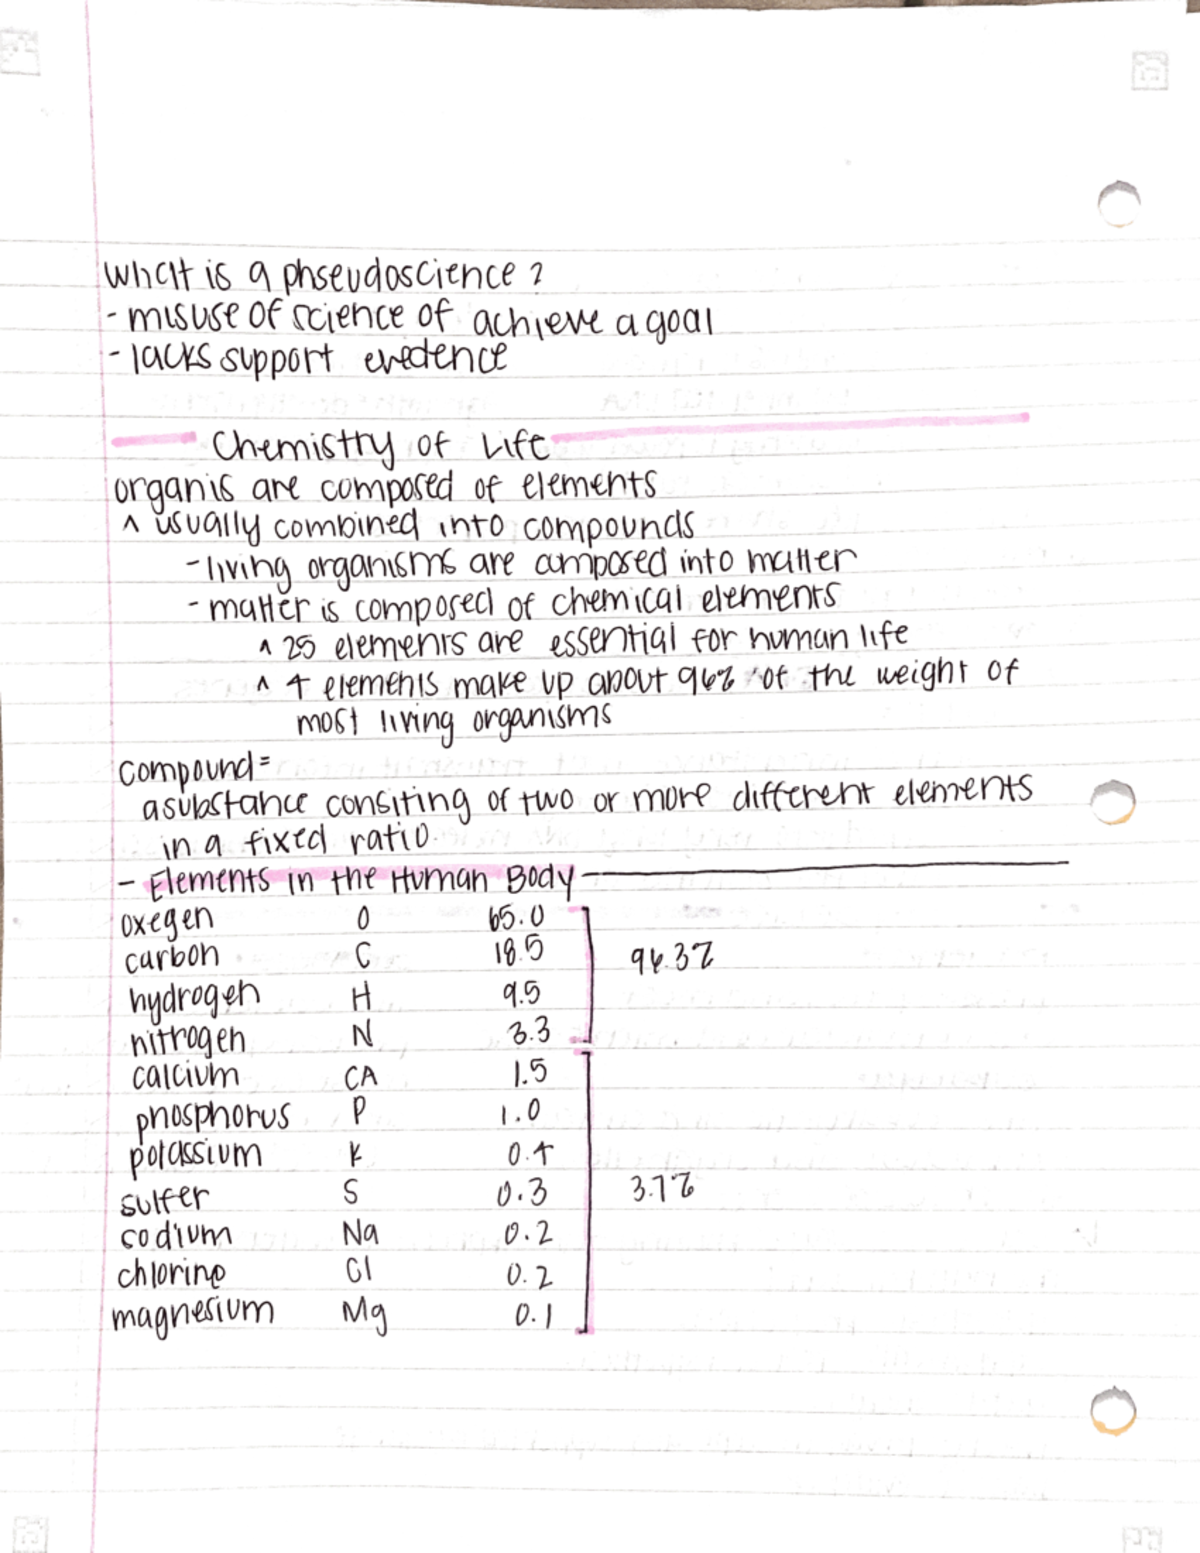 what is a phseudoscience?
- misuse of science of achieve a goal
- lacks support evedence
Chemistry of Life
organis are composed of elements
^ usually combined into compounds
- living organisms are composed into matter
- matter is composed of chemical elements
^ 25 elements are essential for human life
^ 4 elements make up about 96% of the weight of
most living organisms
compound =
a substance consiting of two or more different elements
in a fixed ratio.
- Elements in the Human Body
oxegen O 65.0
carbon C 18.5 96.3%
hydrogen H 9.5
nitrogen N 3.3
calcium CA 1.5
phosphorus P 1.0
potassium K 0.4
sulfer S 0.3 3.7%
sodium Na 0.2
chlorine Cl 0.2
magnesium Mg 0.1